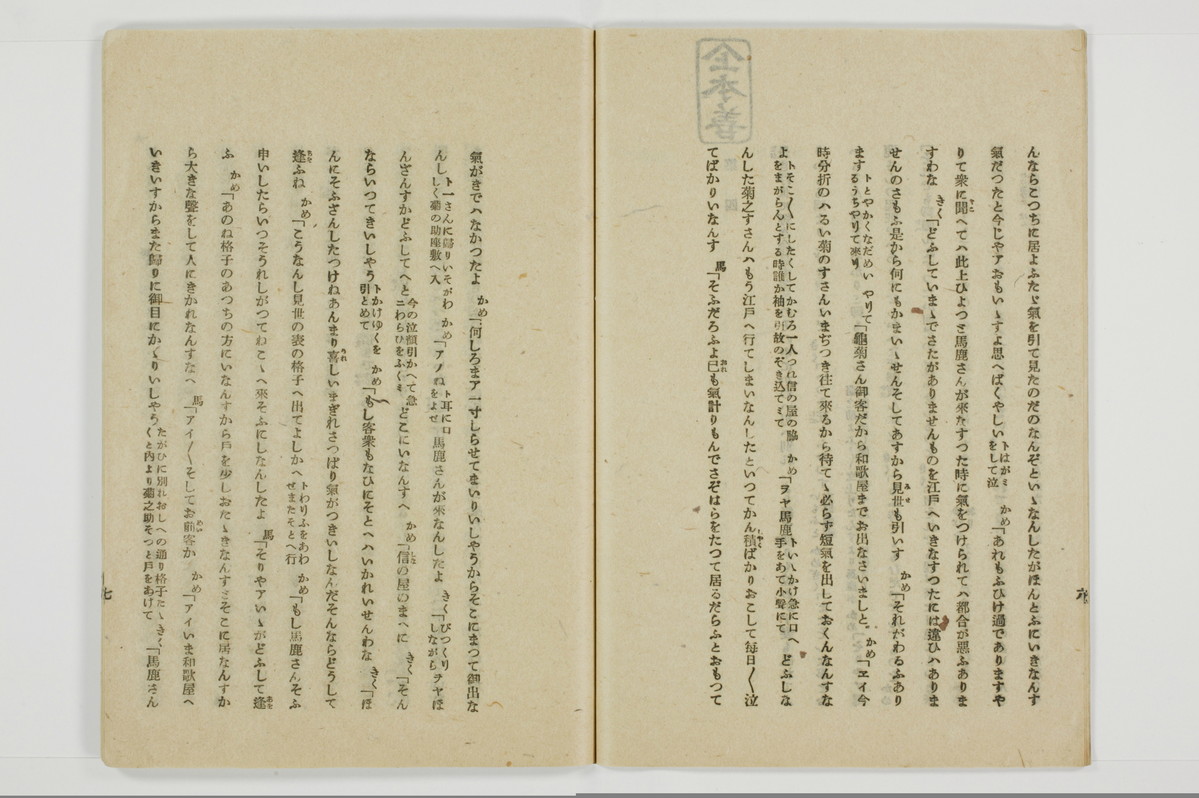 んならこつちに居よふたゝ氣を引て見たのだのなんぞといゝなんしたがほんとふにいきなんす
氣だつたと今じやアおもいゝすよ思へばくやしいトはがミをして泣 かめ「あれもふひけ過でありますや
りて衆に聞へてハ此上ひよつと馬鹿さんが來なすつた時に氣をつけられてハ都合が惡ふありま
すわな きく「どふしていまゝでさたがありませんものを江戸へいきなすつたにはは違ひハありま
せんのさもふ是から何にもかまいゝせんそしてあすから見世も引いす かめ「それがわるふあり
ますトとやかくなだめいるうちやりて來り やりて「龜菊さん御客だから和歌屋までお出なさいましと かめ「エイ今
時分折のハるい菊のすさんいまぢつき往て來るから待てゝ必らず短氣を出しておくんなんすな
よトそこ〳〵にしたくしてかむろ一人つれ信の屋の脇をまがらんとする時誰か袖を引放のぞき込でミて かめ「ヲヤ馬鹿トいゝかけ急に口へ手をあて小聲にて どふしな
んした菊之すさんハもう江戸へ行てしまいなんしたといつてかん積ばかりおこして毎日〳〵泣
てばかりいなんす 馬「そふだろふよ己も氣計りもんでさぞはらをたつて居るだらふとおもつて
六
氣がきでハなかつたよ かめ「何しろまア一寸しらせてまいりいしやうからそこにまつて御出な
んしト一さんに歸りいそがわしく菊の助座敷へ入 かめ「アノねトト耳に口をよせ 馬鹿さんが來なんしたよ きく「びつくりしながらヲヤほ
んさんすかどふしてへと今の泣顔引かへて急ニわらひをふくミ どこにいなんすへ かめ「信の屋のまへに きく「そん
ならいつてきいしやうトかけゆくを引とめて かめ「もし客衆もなひにそとへハいかれいせんわな きく「ほ
んにそふざんしたつけねあんまり喜しいまぎれさつぱり氣がつきいしなんだそんならどうして
逢ふね かめ「こうなんし見世の表の格子へ出てよしかへトわりふをあわせまたそとへ行 かめ「もし馬鹿さんそふ
申いしたらいつそうれしがつてわねこゝへ來そふにしなんしたよ 馬「そりやアいゝがどふして逢
ふ かめ「あのね格子のあつちの方にいなんすから戸を少しおたゝきなんすとそこに居なんすか
ら大きな聲をして人にきかれなんすなへ 馬「アイ〳〵そしてお前客か かめ「アイいま和歌屋へ
いきいすからまた歸りに御目にかゝりいしやうたがひに別れおしへの通り格子たゝくと内より菊之助そつと戸をあけて きく「馬鹿さん
七